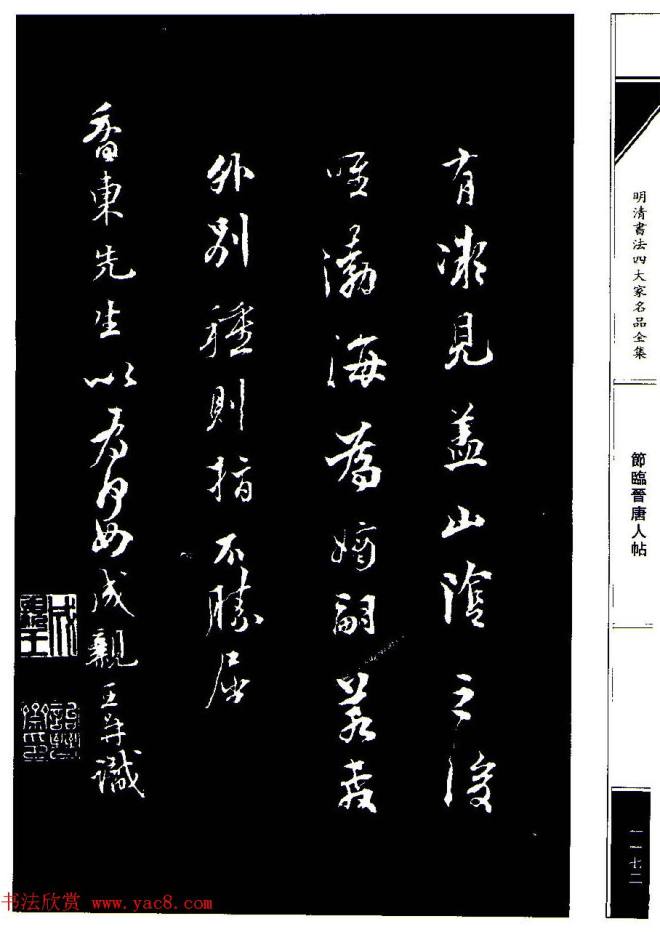 有凝見蓋山陰之後
唯勃海為嫡嗣若教
外別種則指不勝屈
香東先生以為何如成親王并識
明清書法四大家名品全集
節臨晉唐人帖
一一七二
书法欣赏 www.yac8.com